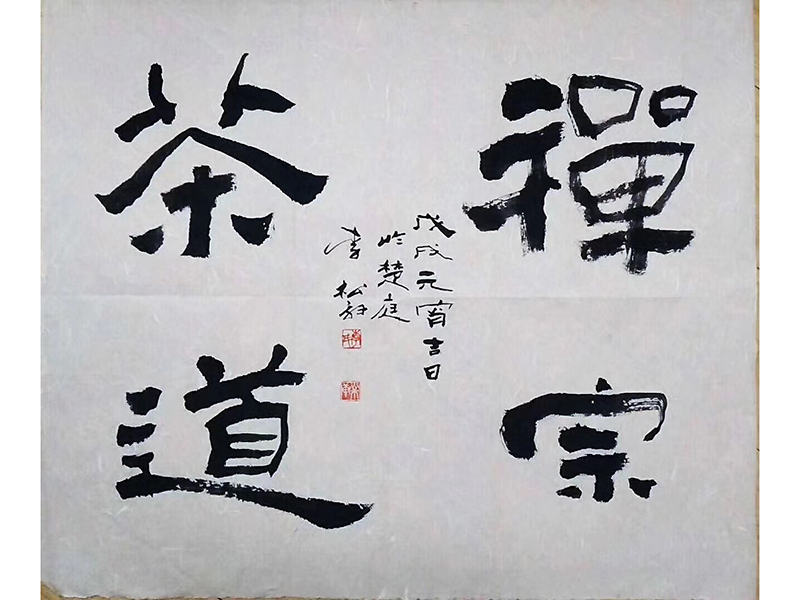 禪宗
茶道
戊戌元宵吉日
於楚庭
李松